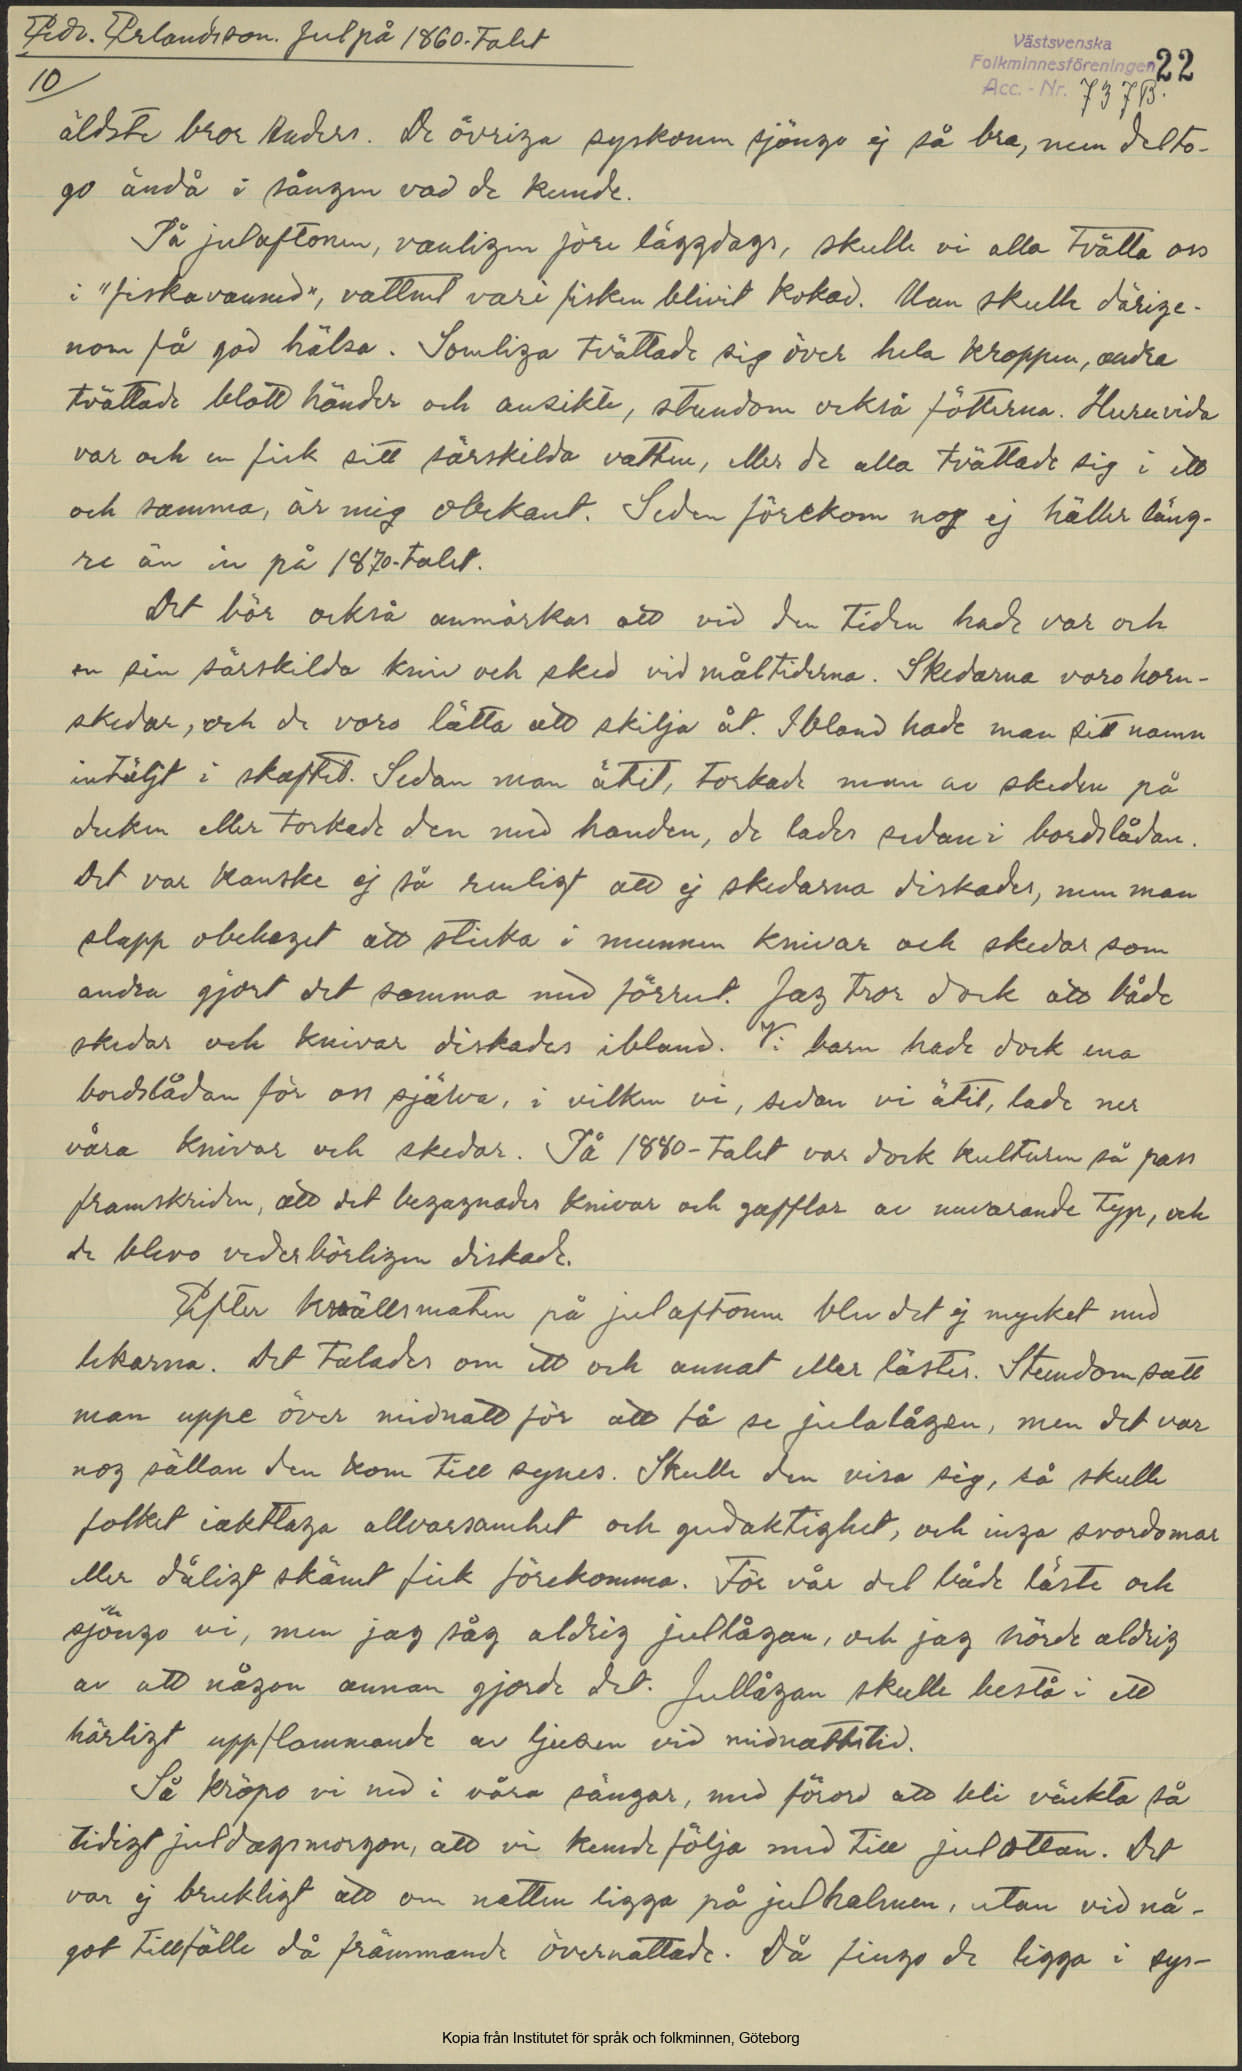 Edv. Erlandsson. Jul på 1860-talet
Västsvenska
Folkminnesföreningen
22
Acc.-Nr. 737B.
10
äldste bror Anders. De övriga syskonen sjöngo ej så bra, men delto-
go ändå i sången vad de kunde.
På julaftonen, vanligen före läggdags, skulle vi alla tvätta oss
i "fiskavanned", vattnet vari fisken blivit kokad. Man skulle därige-
nom få god hälsa. Somliga tvättade sig över hela kroppen, andra
tvättade blott händer och ansikte, stundom också fötterna. Huruvida
var och en fick sitt särskilda vatten, eller de alla tvättade sig i ett
och samma, är mig obekant. Seden förekom nog ej häller läng-
re än in på 1870-talet.
Det bör också anmärkas att vid den tiden hade var och
en sin särskilda kniv och sked vid måltiderna. Skedarna voro horn-
skedar, och de voro lätta att skilja åt. Ibland hade man sitt namn
intäljt i skaftet. Sedan man ätit, torkade man av skeden på
duken eller torkade den med handen, de lades sedan i bordslådan.
Det var kanske ej så renligt att ej skedarna diskades, men man
slapp obehaget att sticka i munnen knivar och skedar som
andra gjort det samma med förrut. Jag tror dock att både
skedar och knivar diskades ibland. Vi barn hade dock ena
bordslådan för oss själva, i vilken vi, sedan vi ätit, lade ner
våra knivar och skedar. På 1880-talet var dock kulturen så pass
framskriden, att det begagnades knivar och gafflar av nuvarande typ, och
de blevo vederbörligen diskade.
Efter kvällsmaten på julaftonen blev det ej mycket med
lekarna. Det talades om ett och annat eller lästes. Stundom satt
man uppe över midnatt för att få se julalågan, men det var
nog sällan den kom till synes. Skulle den visa sig, så skulle
folket iakttaga allvarsamhet och gudaktighet, och inga svordomar
eller dåligt skämt fick förekomma. För vår del både läste och
sjöngo vi, men jag såg aldrig jullågan, och jag hörde aldrig
av att någon annan gjorde det. Jullågan skulle bestå i ett
härligt uppflammande av ljusen vid midnattstid.
Så kröpo vi ned i våra sängar, med förord att bli väckta så
tidigt juldagsmorgon, att vi kunde följa med till julottan. Det
var ej brukligt att om natten ligga på julhalmen, utan vid nå-
got tillfälle då främmande övernattade. Då fingo de ligga i sys-
Kopia från Institutet för språk och folkminnen, Göteborg